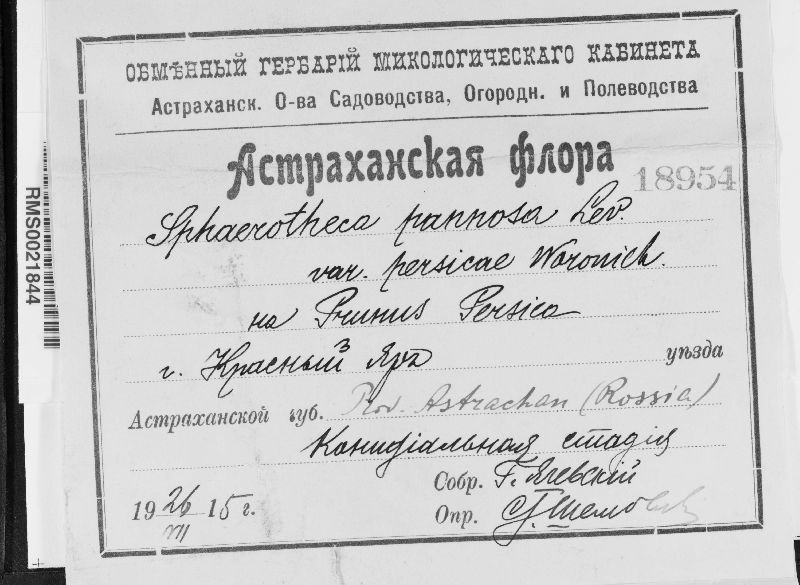 ОБМѢННЫЙ ГЕРБАРІЙ МИКОЛОГИЧЕСКАГО КАБИНЕТА
Астраханск. О-ва Садоводства, Огородн. и Полеводства
Астраханская флора
18954
Sphaerotheca pannosa Lev.
var. persicae Woronich.
на Prunus Persica
г. Красный Яръ уѣзда
Астраханской губ. Prov. Astrachan (Rossia)
Конидіальная стадія
Собр. Г. Ячевскій
1926 15 г.
VII
Опр.
RMS0021844